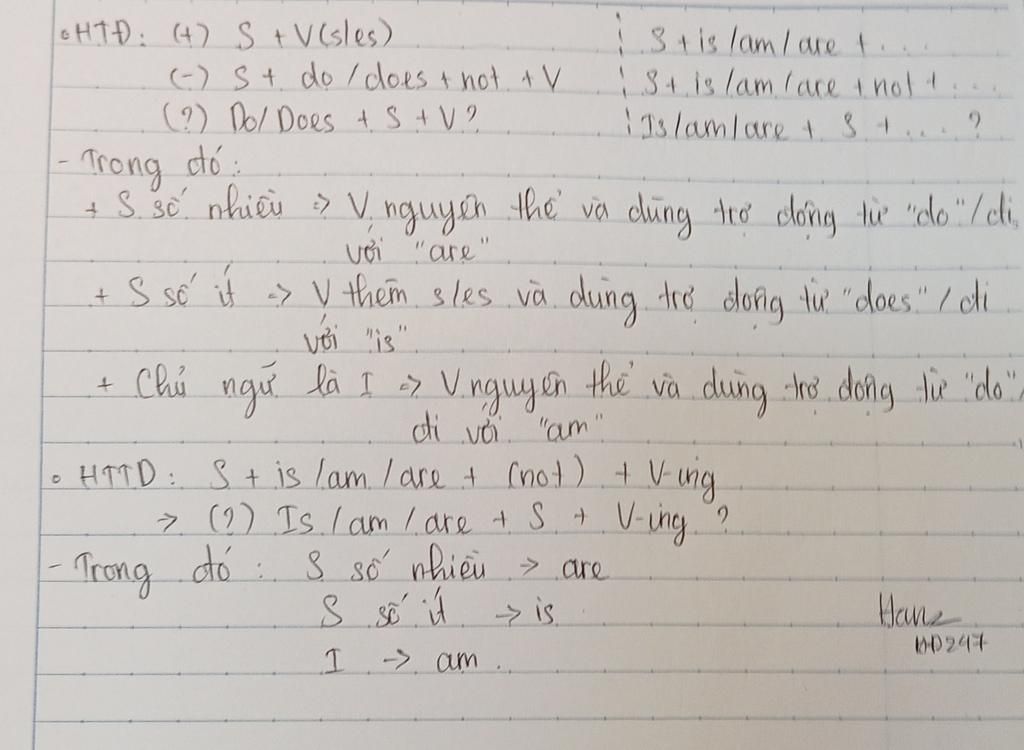 • HTĐ: (+) S + V(s/es) ¦ S + is/am/are + ...
(-) S + do/does + not + V ¦ S + is/am/are + not + ...
(?) Do/Does + S + V? ¦ Is/am/are + S + ... ?
- Trong đó:
+ S số nhiều => V nguyên thể và dùng trợ động từ "do"/đi
với "are"
+ S số ít => V thêm s/es và dùng trợ động từ "does"/đi
với "is"
+ Chủ ngữ là I => V nguyên thể và dùng trợ động từ "do",
đi với "am"
• HTTD: S + is/am/are + (not) + V-ing
-> (?) Is/am/are + S + V-ing ?
- Trong đó: S số nhiều -> are
S số ít -> is
I -> am.